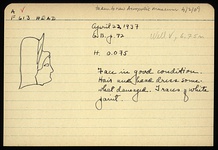 Taken to Acropolis Museum
A V
P 613 HEAD
April 22, 1937
W.B., p. 72
H. 0.075
Face in good condition.
Hair and head dress some-
what damaged. Traces of white
paint.